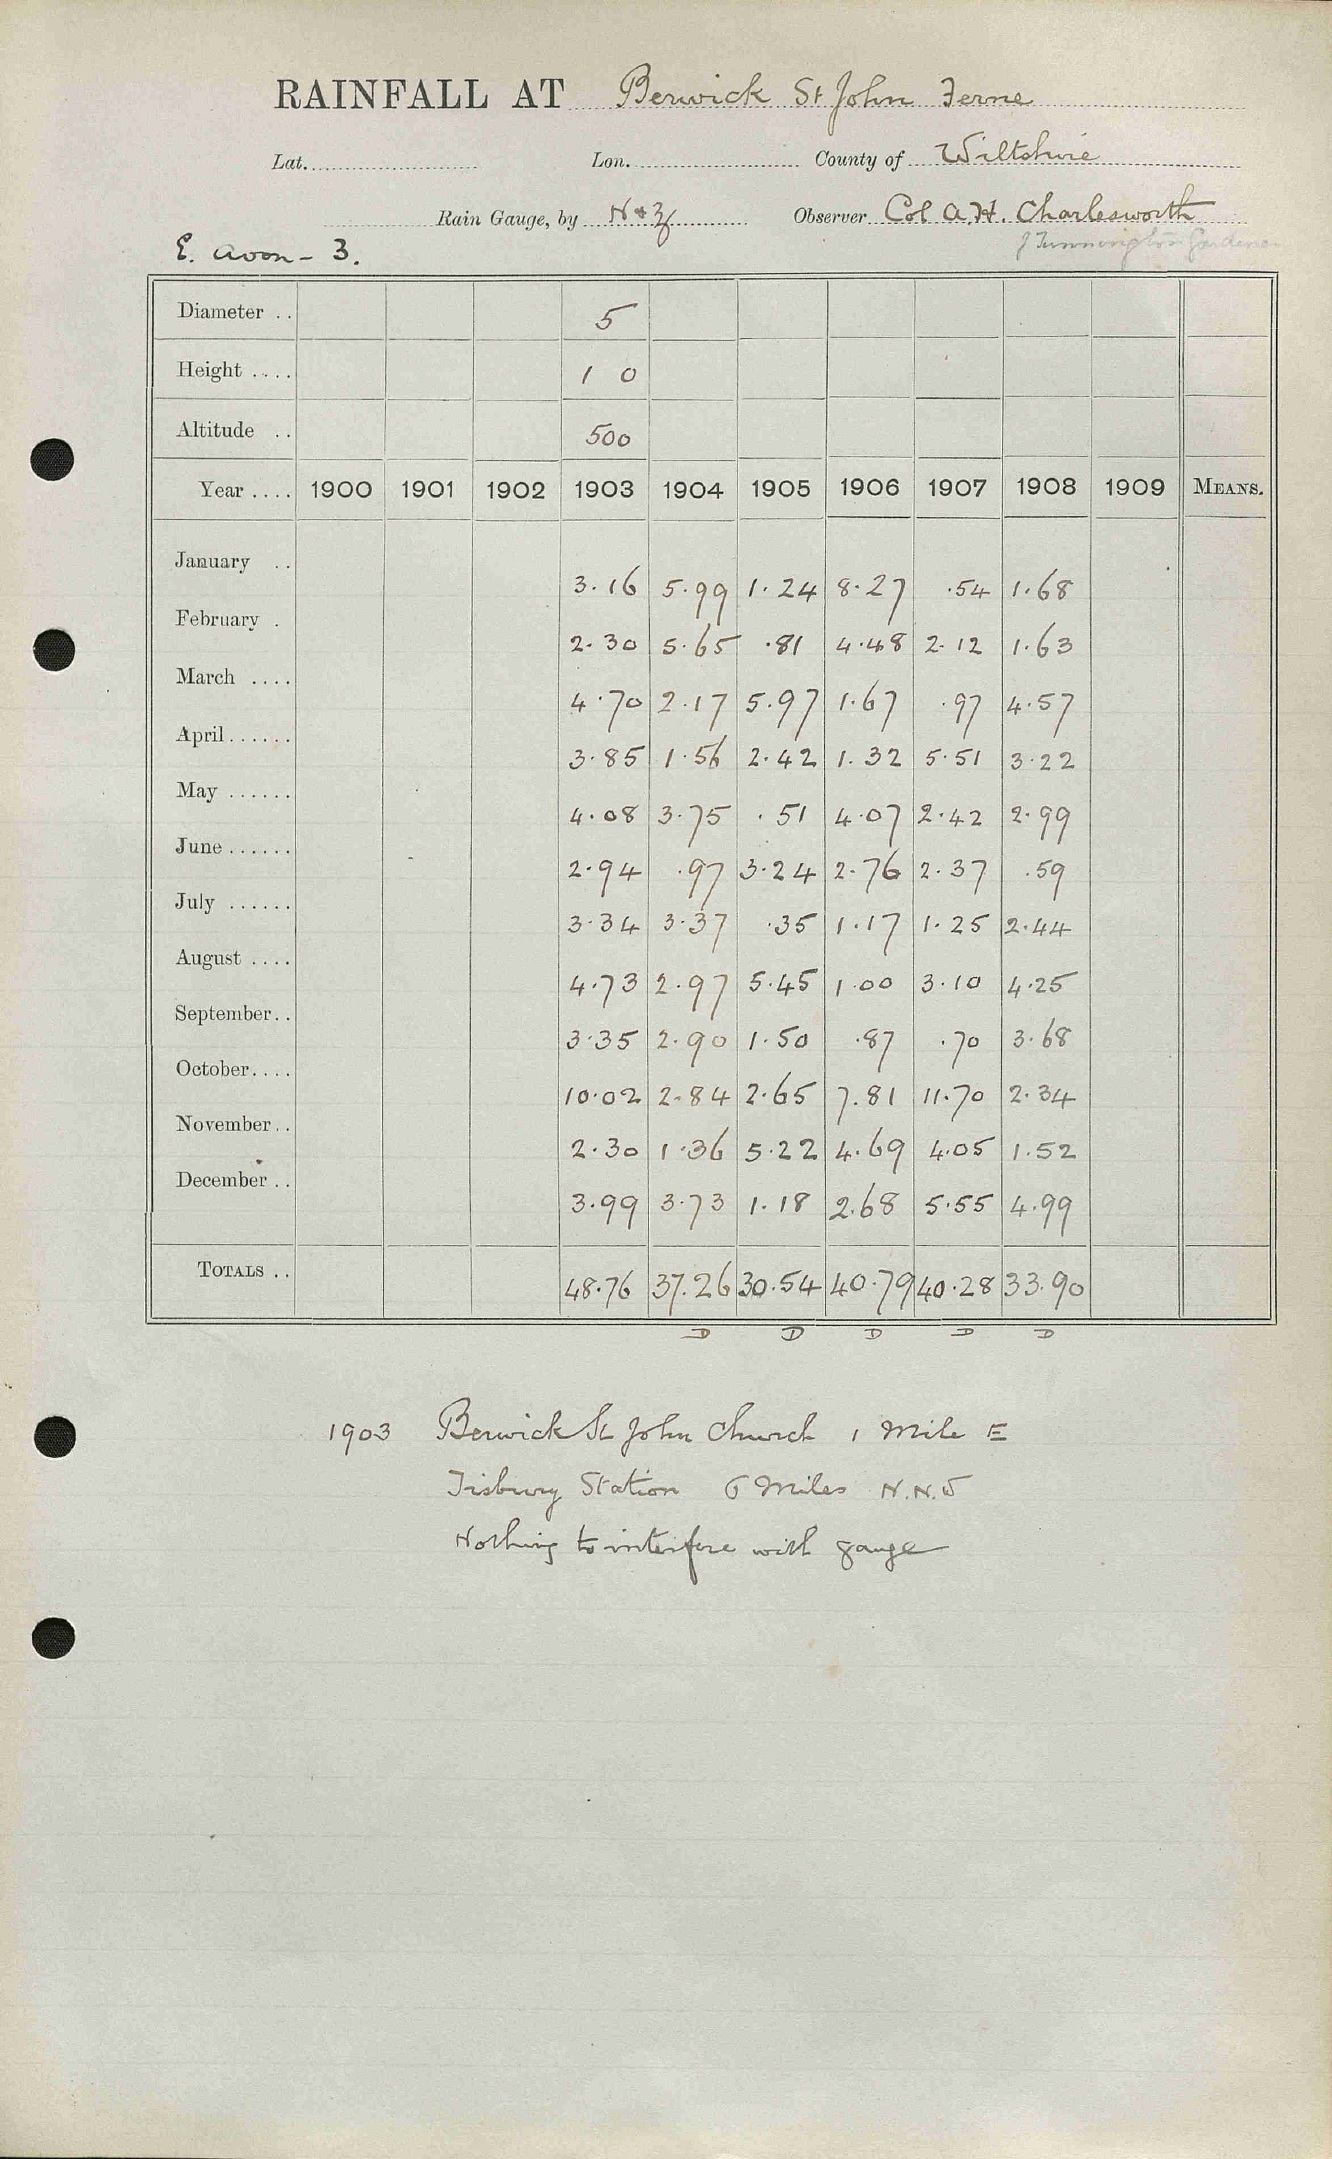 RAINFALL AT Berwick St John Ferne
Lat. Lon. County of Wiltshire
Rain Gauge, by N & Z Observer Col A.H. Charlesworth
E. Avon - 3. Gardener
Diameter .. 5
Height .... 1 0
Altitude .. 500
Year .... 1900 1901 1902 1903 1904 1905 1906 1907 1908 1909 MEANS.
January .. 3.16 5.99 1.24 8.27 .54 1.68
February . 2.30 5.65 .81 4.48 2.12 1.63
March .... 4.70 2.17 5.97 1.67 .97 4.57
April...... 3.85 1.56 2.42 1.32 5.51 3.22
May ...... 4.08 3.75 .51 4.07 2.42 2.99
June...... 2.94 .97 3.24 2.76 2.37 .59
July ...... 3.34 3.37 .35 1.17 1.25 2.44
August .... 4.73 2.97 5.45 1.00 3.10 4.25
September.. 3.35 2.90 1.50 .87 .70 3.68
October.... 10.02 2.84 2.65 7.81 11.70 2.34
November.. 2.30 1.36 5.22 4.69 4.05 1.52
December .. 3.99 3.73 1.18 2.68 5.55 4.99
TOTALS .. 48.76 37.26 30.54 40.79 40.28 33.90
D D D D D
1903 Berwick St John Church 1 Mile E
Tisbury Station 6 Miles N.N.W
Nothing to interfere with gauge